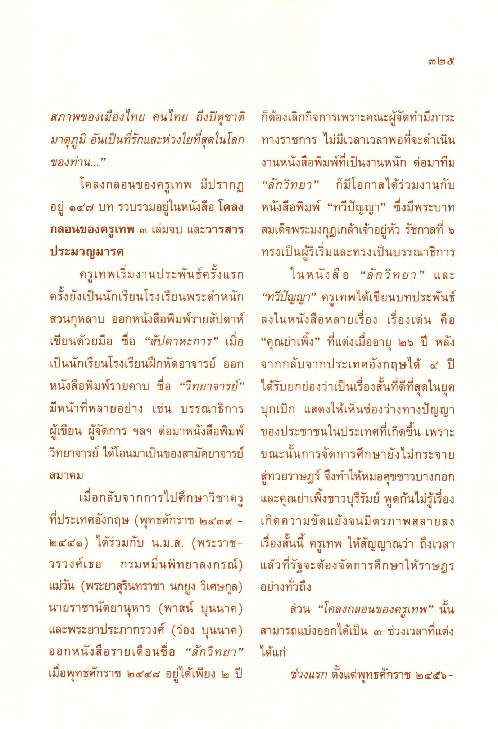 ๓๒๕
สภาพของเมืองไทย คนไทย ถึงปิตุชาติ
มาตุภูมิ อันเป็นที่รักและห่วงใยที่สุดในโลก
ของท่าน..."
โคลงกลอนของครูเทพ มีปรากฏ
อยู่ ๑๔๘ บท รวบรวมอยู่ในหนังสือ โคลง
กลอนของครูเทพ ๓ เล่มจบ และวารสาร
ประมวญมารค
ครูเทพเริ่มงานประพันธ์ครั้งแรก
ครั้งยังเป็นนักเรียนโรงเรียนพระตำหนัก
สวนกุหลาบ ออกหนังสือพิมพ์รายสัปดาห์
เขียนด้วยมือ ชื่อ "สัปตาหะการ" เมื่อ
เป็นนักเรียนโรงเรียนฝึกหัดอาจารย์ ออก
หนังสือพิมพ์รายคาบ ชื่อ "วิทยาจารย์"
มีหน้าที่หลายอย่าง เช่น บรรณาธิการ
ผู้เขียน ผู้จัดการ ฯลฯ ต่อมาหนังสือพิมพ์
วิทยาจารย์ ได้โอนมาเป็นของสามัคยาจารย์
สมาคม
เมื่อกลับจากการไปศึกษาวิชาครู
ที่ประเทศอังกฤษ (พุทธศักราช ๒๔๓๙ -
๒๔๔๑) ได้ร่วมกับ น.ม.ส. (พระราช-
วรวงศ์เธอ กรมหมื่นพิทยาลงกรณ์)
แม่วัน (พระยาสุรินทราชา นกยูง วิเศษกุล)
นายราชานัตยานุหาร (พาสน์ บุนนาค)
และพระยาประภากรวงศ์ (ว่อง บุนนาค)
ออกหนังสือรายเดือนชื่อ "ลักวิทยา"
เมื่อพุทธศักราช ๒๔๔๘ อยู่ได้เพียง ๒ ปี
ก็ต้องเลิกกิจการเพราะคณะผู้จัดทำมีภาระ
ทางราชการ ไม่มีเวลาเวลาพอที่จะดำเนิน
งานหนังสือพิมพ์ที่เป็นงานหนัก ต่อมาทีม
"ลักวิทยา" ก็มีโอกาสได้ร่วมงานกับ
หนังสือพิมพ์ "ทวีปัญญา" ซึ่งมีพระบาท
สมเด็จพระมงกุฎเกล้าเจ้าอยู่หัว รัชกาลที่ ๖
ทรงเป็นผู้ริเริ่มและทรงเป็นบรรณาธิการ
ในหนังสือ "ลักวิทยา" และ
"ทวีปัญญา" ครูเทพได้เขียนบทประพันธ์
ลงในหนังสือหลายเรื่อง เรื่องเด่น คือ
"คุณย่าเพิ้ง" ที่แต่งเมื่ออายุ ๒๖ ปี หลัง
จากกลับจากประเทศอังกฤษได้ ๔ ปี
ได้รับยกย่องว่าเป็นเรื่องสั้นที่ดีที่สุดในยุค
บุกเบิก แสดงให้เห็นช่องว่างทางปัญญา
ของประชาชนในประเทศที่เกิดขึ้น เพราะ
ขณะนั้นการจัดการศึกษายังไม่กระจาย
สู่ทวยราษฎร์ จึงทำให้หมอศุขชาวบางกอก
และคุณย่าเพิ้งชาวบุรีรัมย์ พูดกันไม่รู้เรื่อง
เกิดความขัดแย้งจนมิตรภาพสลายลง
เรื่องสั้นนี้ ครูเทพ ให้สัญญาณว่า ถึงเวลา
แล้วที่รัฐจะต้องจัดการศึกษาให้ราษฎร
อย่างทั่วถึง
ส่วน "โคลงกลอนของครูเทพ" นั้น
สามารถแบ่งออกได้เป็น ๓ ช่วงเวลาที่แต่ง
ได้แก่
ช่วงแรก ตั้งแต่พุทธศักราช ๒๔๕๖-